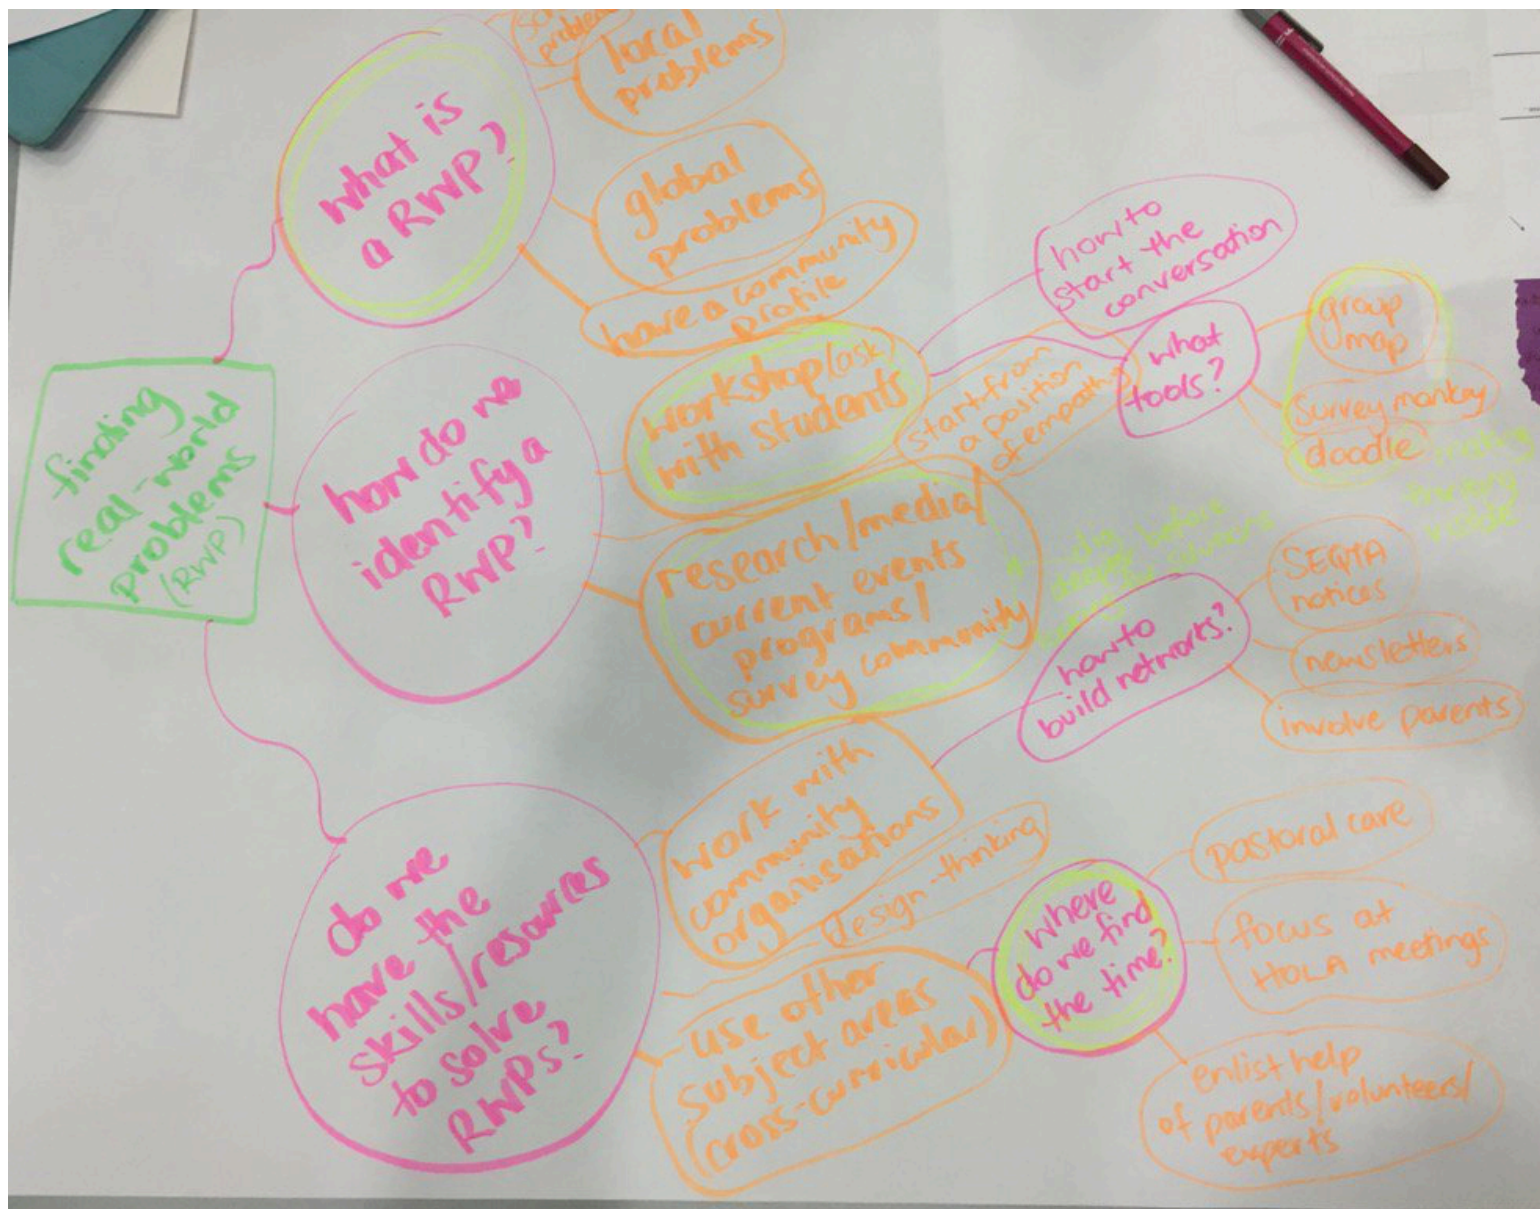 finding
real-world
problems
(RWP)
what is
a RWP?
problems
local
problems
global
problems
have a community
profile
how do we
identify a
RWP?
workshop/(ask)
with students
how to
start the
conversation
start from
a position
of empathy
what
tools?
group
map
survey monkey
doodle
making
thinking
visible
research/media/
current events
programs/
survey community
* dig
deeper before
do we
have the
skills/resources
to solve
RWPs?
work with
community
organisations
how to
build networks?
SEQTA
notices
newsletters
involve parents
design-thinking
use other
subject areas
(cross-curricular)
where
do we find
the time?
pastoral care
focus at
HOLA meetings
enlist help
of parents/volunteers/
experts